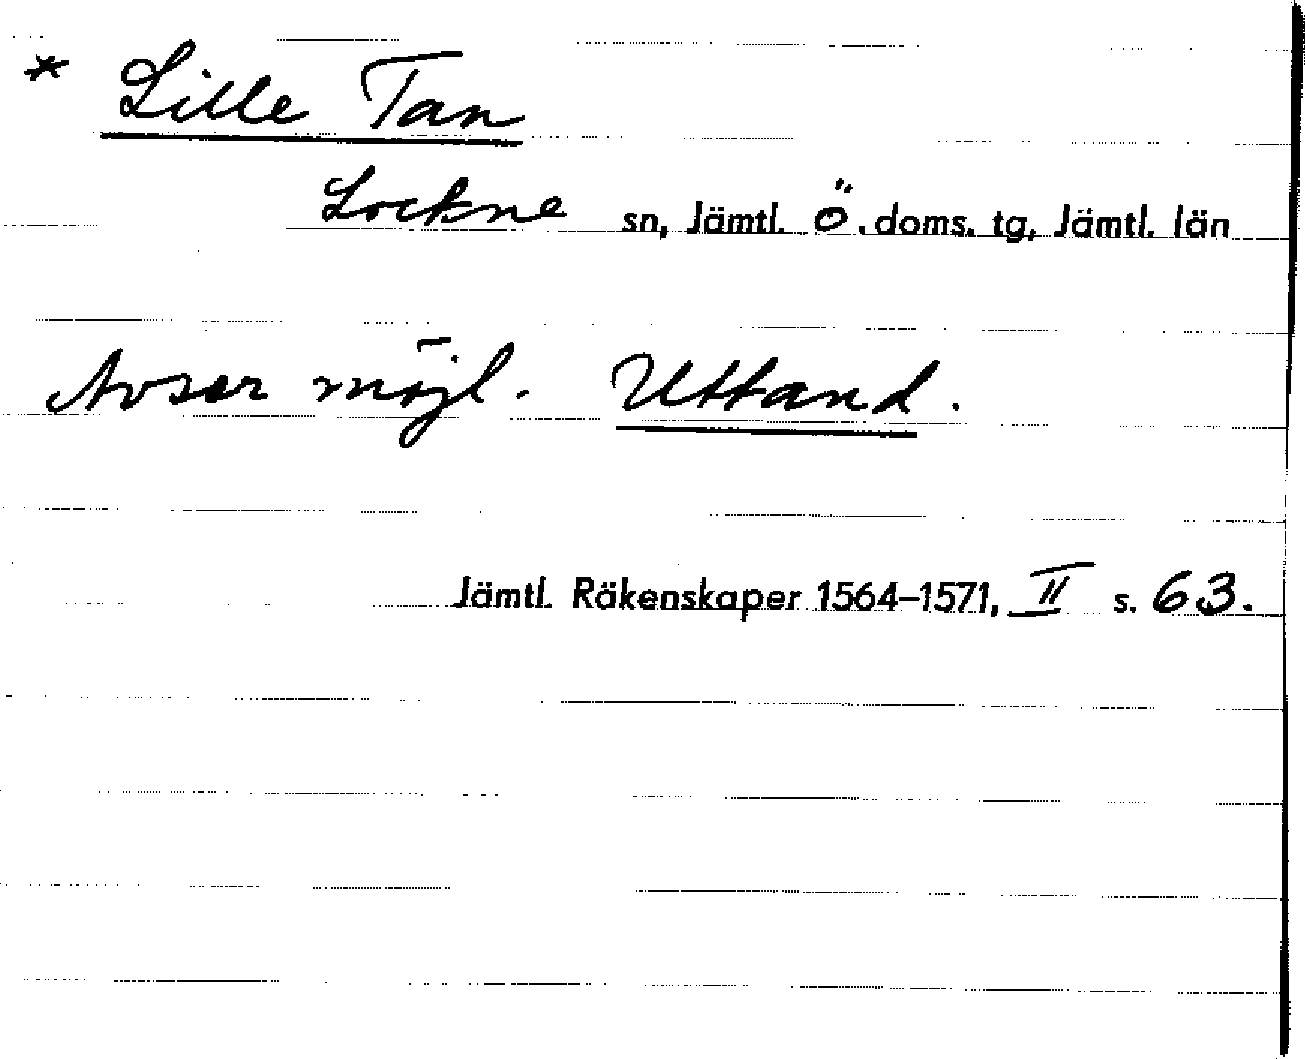 * Lille Tan
Lockne sn, Jämtl. Ö. doms. tg, Jämtl. län
Avser möjl. Uttand.
Jämtl. Räkenskaper 1564–1571, II s. 63.